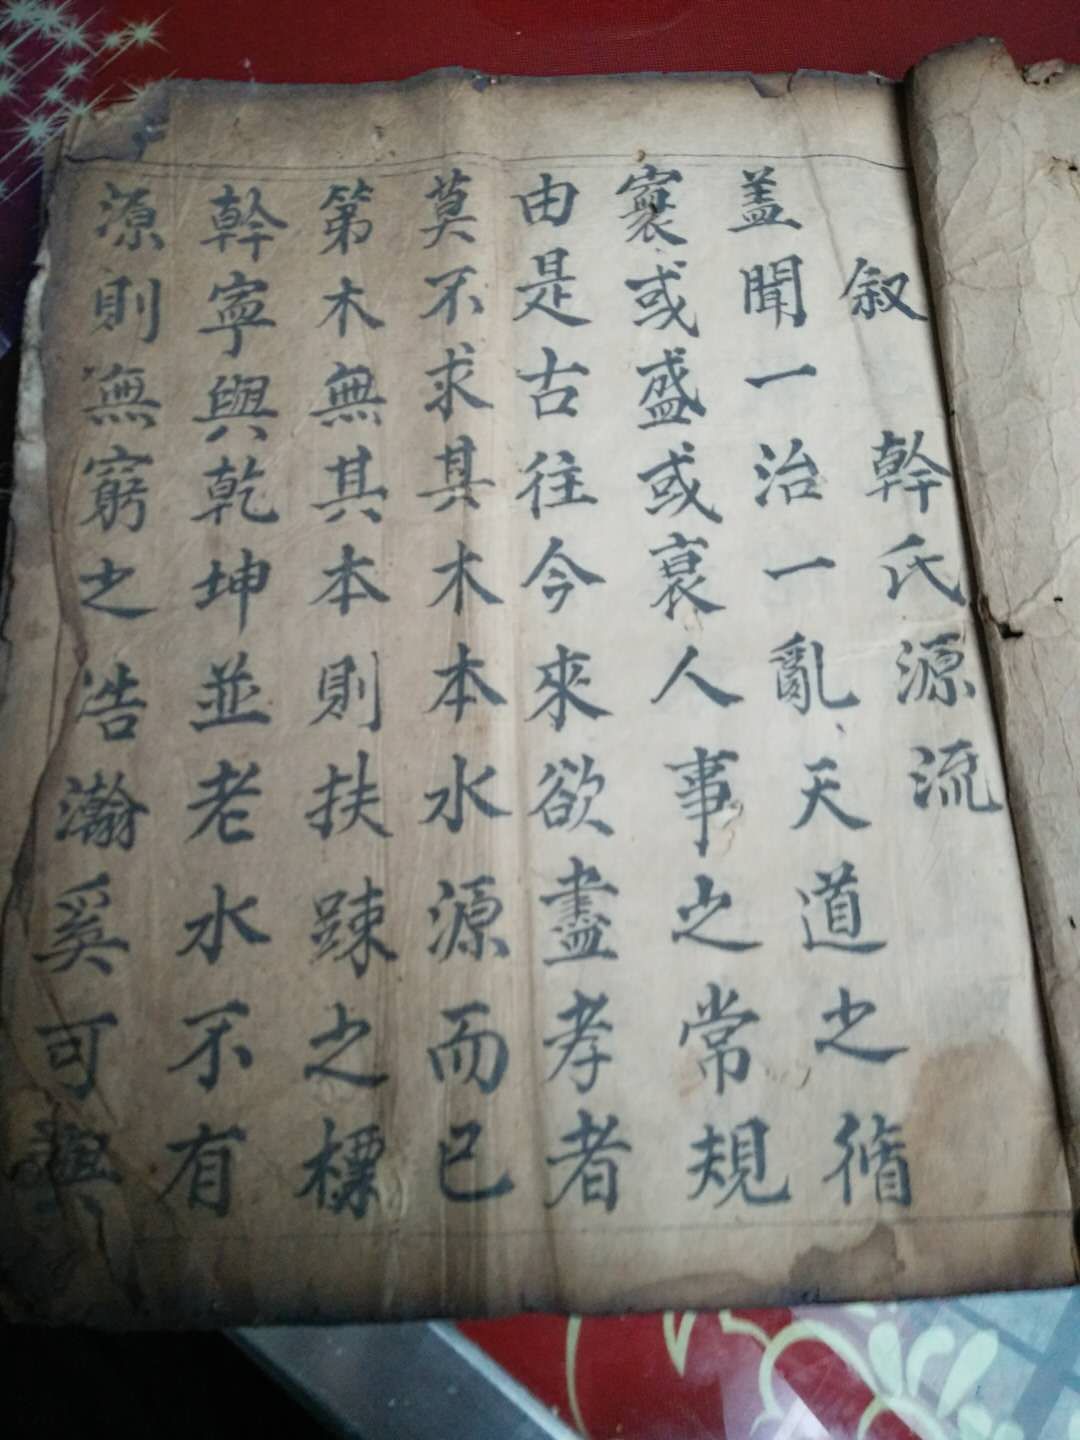 叙　幹氏源流
蓋聞一治一亂天道之循
寰或盛或衰人事之常規
由是古往今來欲盡孝者
莫不求其木本水源而已
第木無其本則扶踈之標
幹寧與乾坤並老水不有
源則無窮之浩瀚奚可與